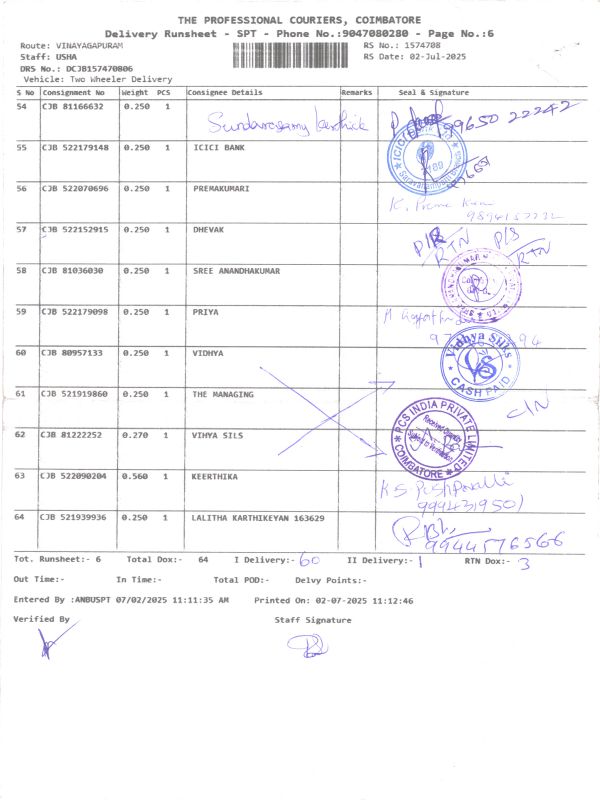 THE PROFESSIONAL COURIERS, COIMBATORE
Delivery Runsheet - SPT - Phone No.:9047080280 - Page No.:6
Route: VINAYAGAPURAM RS No.: 1574708
Staff: USHA RS Date: 02-Jul-2025
DRS No.: DCJB157470806
Vehicle: Two Wheeler Delivery
S No Consignment No Weight PCS Consignee Details Remarks Seal & Signature
54 CJB 81166632 0.250 1 99650 22242
55 CJB 522179148 0.250 1 ICICI BANK
56 CJB 522070696 0.250 1 PREMAKUMARI
57 CJB 522152915 0.250 1 DHEVAK RTN RTN
58 CJB 81036030 0.250 1 SREE ANANDHAKUMAR
59 CJB 522179098 0.250 1 PRIYA
60 CJB 80957133 0.250 1 VIDHYA Vidhya Silks VS CASH PAID
61 CJB 521919860 0.250 1 THE MANAGING
62 CJB 81222252 0.270 1 VIHYA SILS PCS INDIA PRIVATE LIMITED COIMBATORE
63 CJB 522090204 0.560 1 KEERTHIKA
9994319501
64 CJB 521939936 0.250 1 LALITHA KARTHIKEYAN 163629
9944576566
Tot. Runsheet:- 6 Total Dox:- 64 I Delivery:- 60 II Delivery:- 1 RTN Dox:- 3
Out Time:- In Time:- Total POD:- Delvy Points:-
Entered By :ANBUSPT 07/02/2025 11:11:35 AM Printed On: 02-07-2025 11:12:46
Verified By Staff Signature